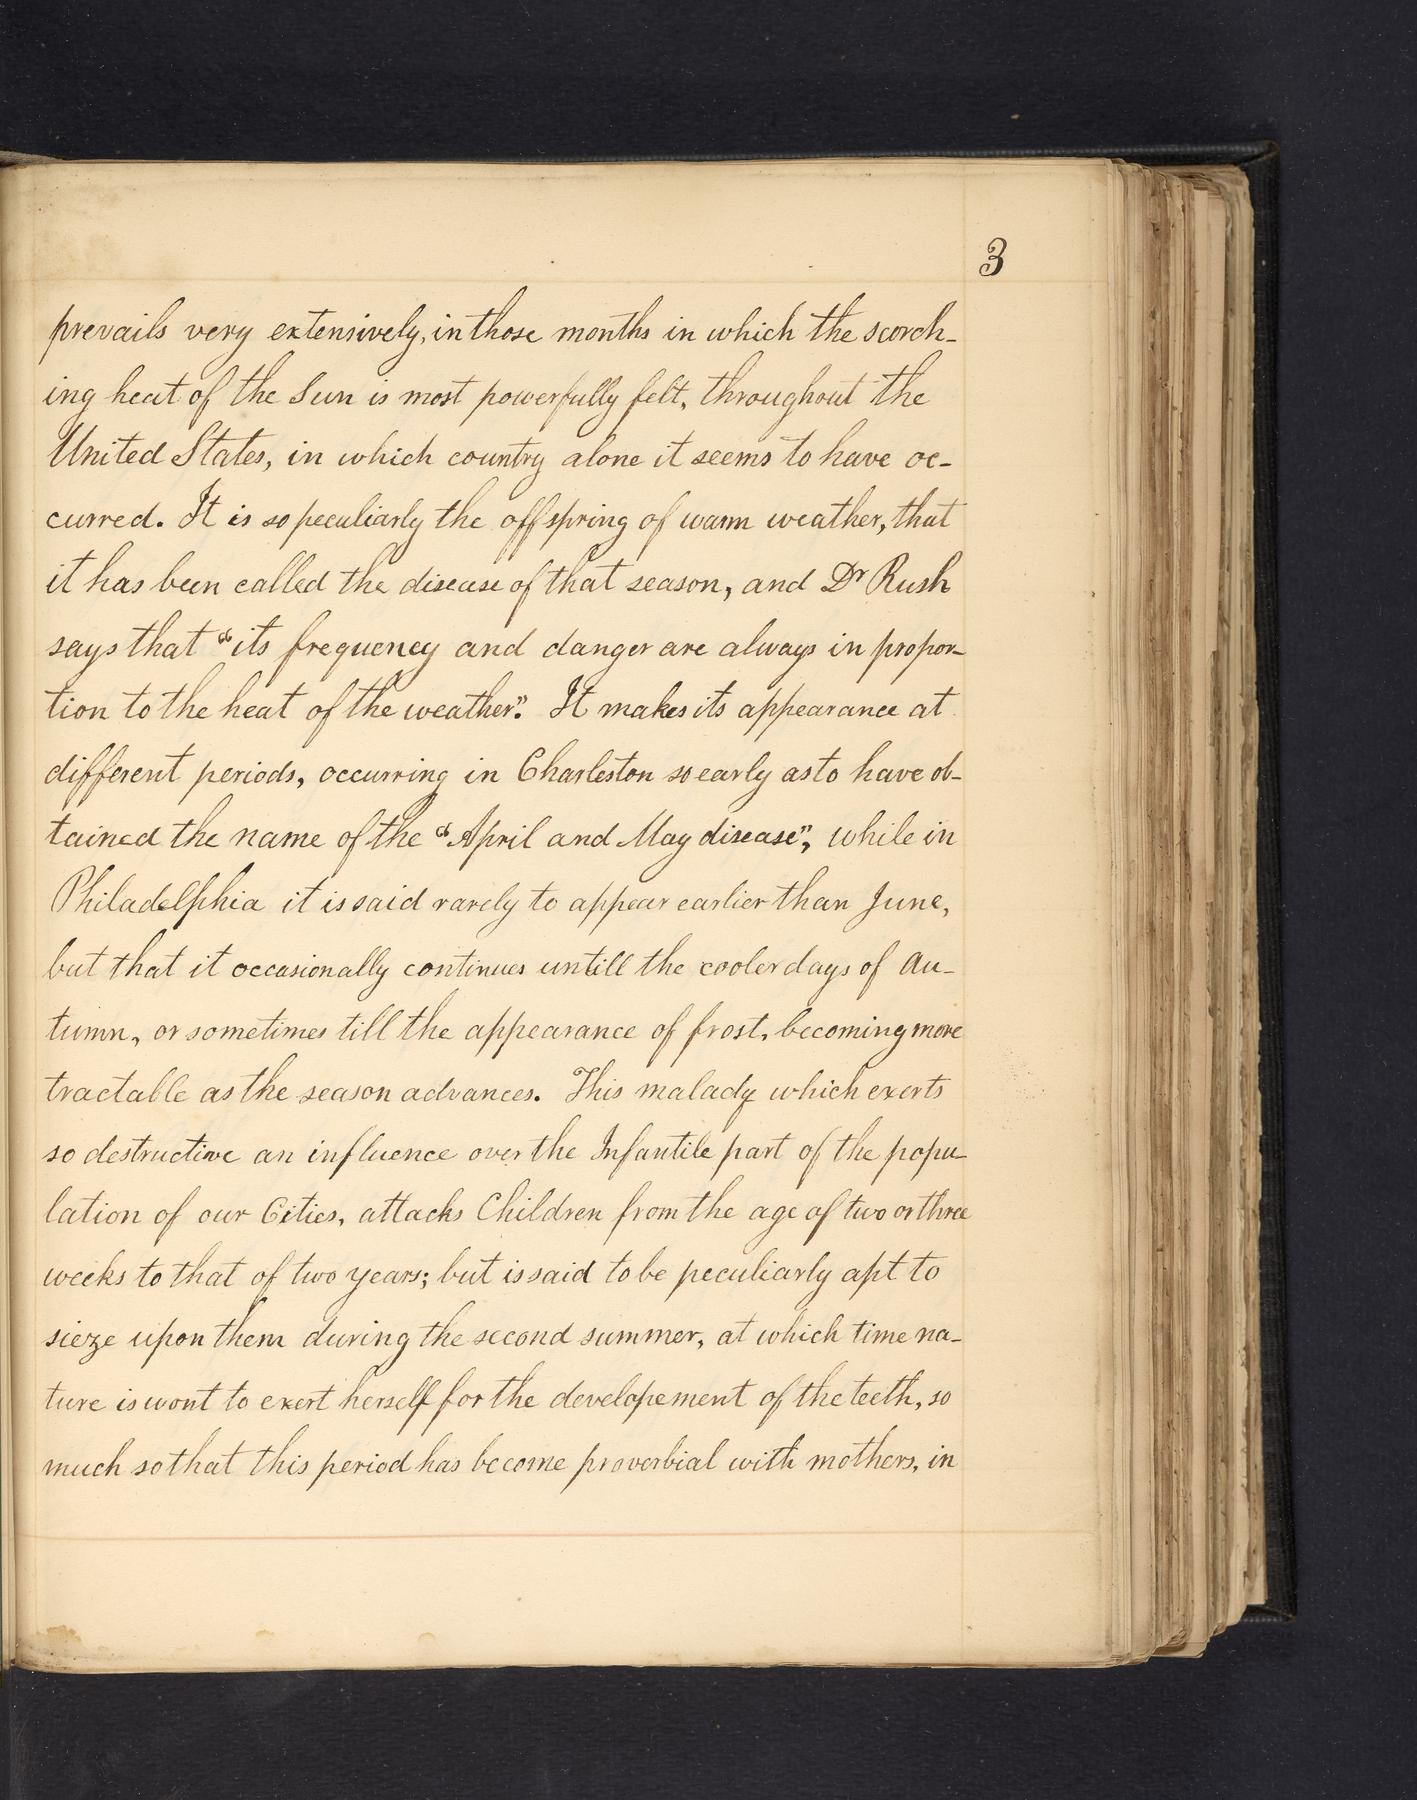 3
prevails very extensively, in those months in which the scorch-
ing heat of the Sun is most powerfully felt, throughout the
United States, in which country alone it seems to have oc-
curred. It is so peculiarly the offspring of warm weather, that
it has been called the disease of that season, and Dr Rush
says that "its frequency and danger are always in propor-
tion to the heat of the weather". It makes its appearance at
different periods, occurring in Charleston so early as to have ob-
tained the name of the "April and May disease", while in
Philadelphia it is said rarely to appear earlier than June,
but that it occasionally continues untill the cooler days of Au-
tumn, or sometimes till the appearance of frost, becoming more
tractable as the season advances. This malady which exerts
so destructive an influence over the Infantile part of the popu-
lation of our Cities, attacks Children from the age of two or three
weeks to that of two years; but is said to be peculiarly apt to
sieze upon them during the second summer, at which time na-
ture is wont to exert herself for the developement of the teeth, so
much so that this period has become proverbial with mothers, in